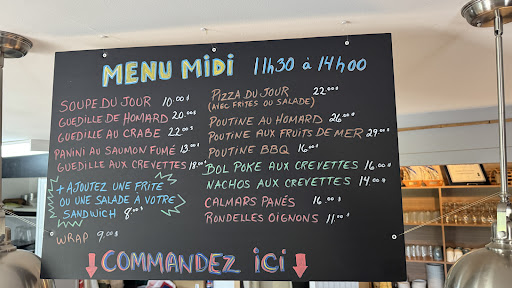 MENU MIDI 11h30 à 14h00
SOUPE DU JOUR 10.00$
GUEDILLE DE HOMARD 20.00$
GUEDILLE AU CRABE 22.00$
PANINI AU SAUMON FUMÉ 13.00$
GUEDILLE AUX CREVETTES 18.00$
+ AJOUTEZ UNE FRITE
OU UNE SALADE À VOTRE
SANDWICH 8.00$
WRAP 9.00$
PIZZA DU JOUR 22.00$
(AVEC FRITES OU SALADE)
POUTINE AU HOMARD 26.00$
POUTINE AUX FRUITS DE MER 29.00$
POUTINE BBQ 16.00$
BOL POKE AUX CREVETTES 16.00$
NACHOS AUX CREVETTES 14.00$
CALMARS PANÉS 16.00$
RONDELLES OIGNONS 11.00$
COMMANDEZ ICI